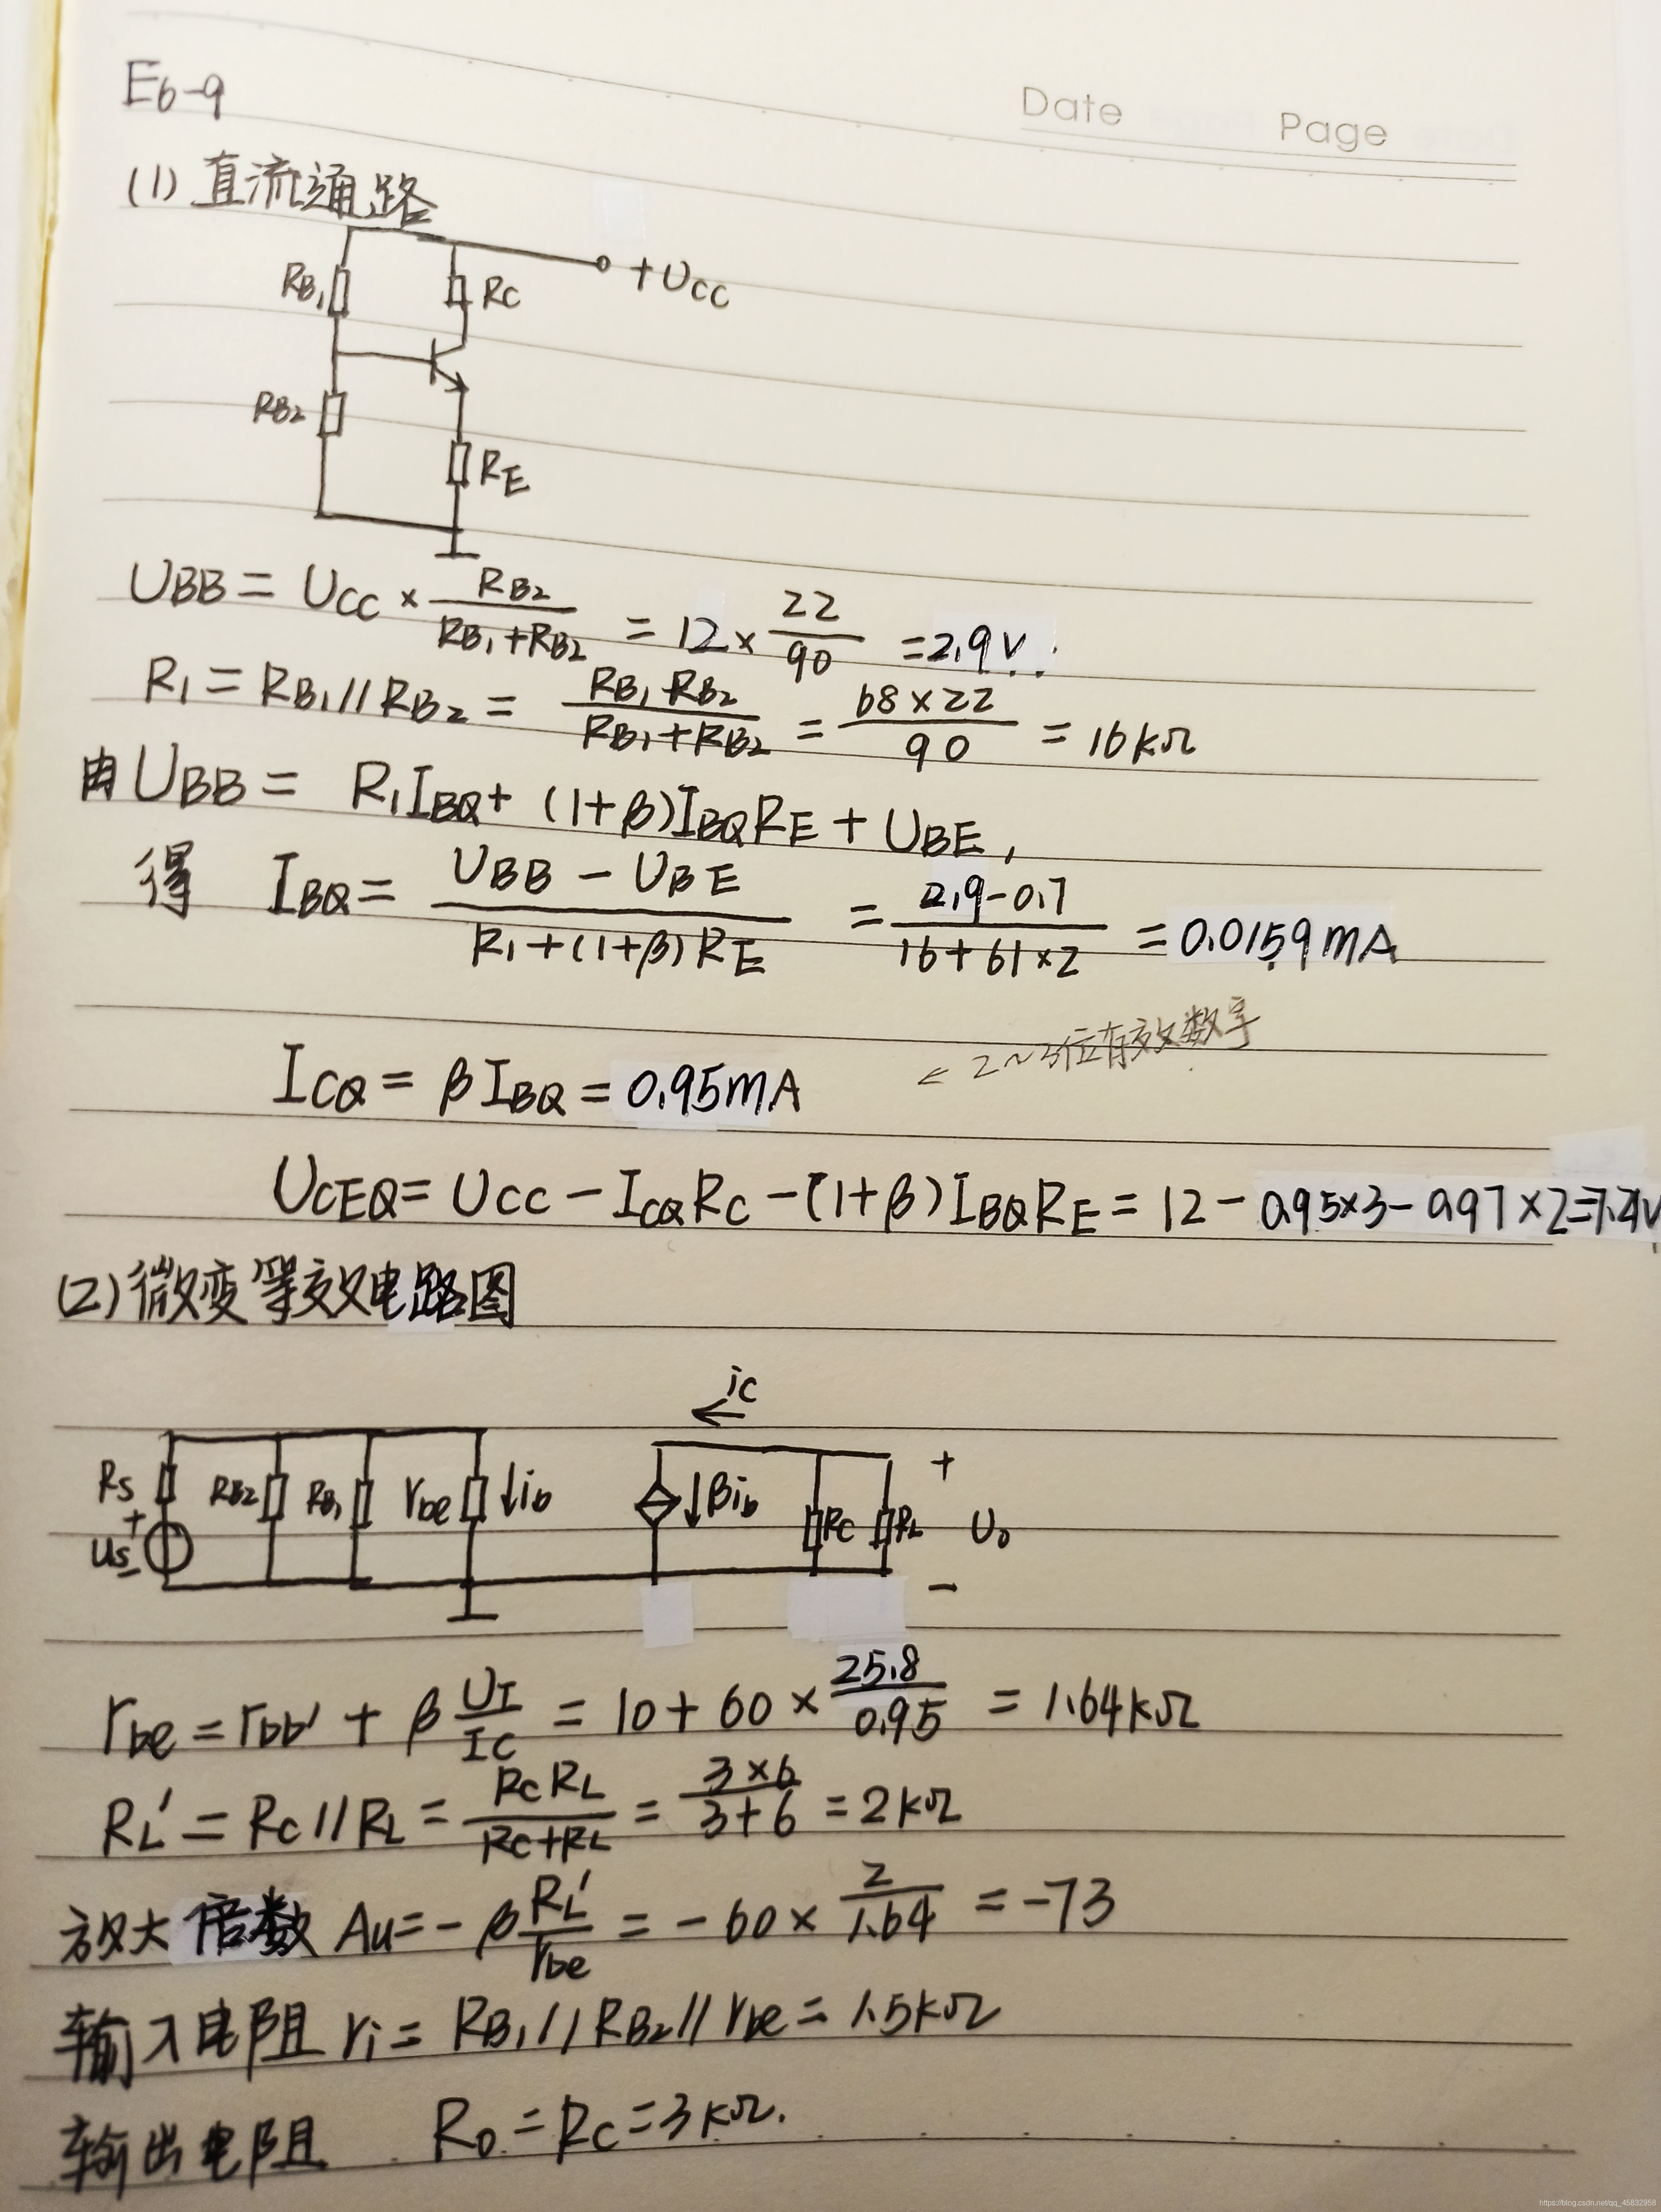 Date Page
E6-9
(1) 直流通路
RB1 RC +UCC
RB2 RE
UBB = UCC × RB2/(RB1+RB2) = 12 × 22/90 = 2.9V.
R1 = RB1//RB2 = RB1·RB2/(RB1+RB2) = 68×22/90 = 16kΩ
由 UBB = R1IBQ + (1+β)IBQRE + UBE,
得 IBQ = (UBB - UBE)/(R1+(1+β)RE) = (2.9-0.7)/(16+61×2) = 0.0159mA
← 2~3位有效数字
ICQ = βIBQ = 0.95mA
UCEQ = UCC - ICQRC - (1+β)IBQRE = 12 - 0.95×3 - 0.97×2 = 7.2V
(2) 微变等效电路图
ic
RS RB2 RB1 rbe ↓ib ↓βib RC RL + U0 -
+ us -
rbe = rbb' + β UT/IC = 10 + 60 × 25.8/0.95 = 1.64kΩ
RL' = RC//RL = RCRL/(RC+RL) = 3×6/(3+6) = 2kΩ
放大倍数 Au = -β RL'/rbe = -60 × 2/1.64 = -73
输入电阻 ri = RB1//RB2//rbe = 1.5kΩ
输出电阻 R0 = RC = 3kΩ.
https://blog.csdn.net/qq_45832958